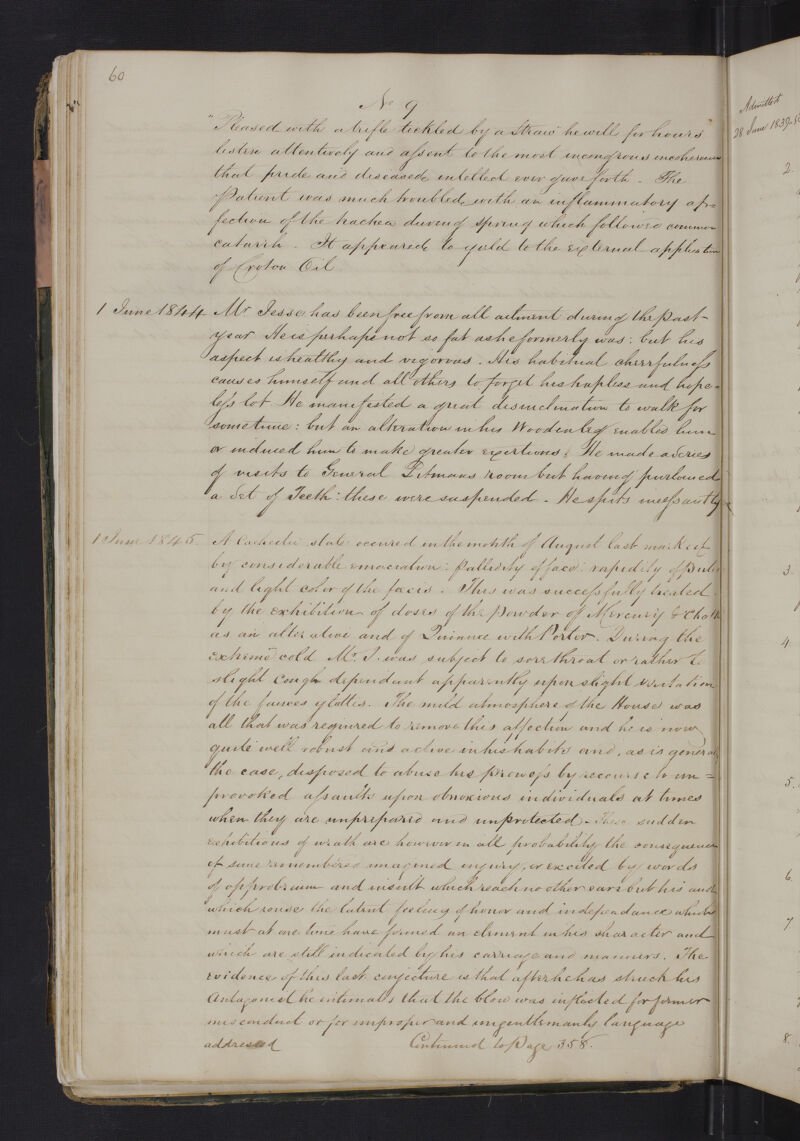 60
No 9
"Pleased with a trifle tickled by a Straw" he will for hours
listen attentively and assent to the most incongrous incoheren
that pride and diseased intellect ever gave forth. The
Patient was much troubled with an inflammatory af-
fection of the trachea during Spring which followed common
catarrh. It appeared to yield to the external application
of Croton Oil
1 June 1844 Mr Jesse has been free from all ailment during the past
year He is perhaps not so fat as he formerly was: but his
aspect is healthy and vigorous. His habitual cheerfulness
causes himself and all others to forget his hapless and hope-
less lot He manifested a great disinclination to walk for
sometime: but an alteration in his Wooden leg enables him
or induced him to make greater exertions. He made a series
of visits to General Pitmans room but having purloined
a Set of Teeth: these were suspended. He spits incessantly
1 June 1845. A Cachectic state occured in the month of August last marked
by considerable emaciation: Pallidity of face: rapidity of Pulse
and light color of the faeces. This was successfully treated
by the exhibition of doses of the Powder of Mercury & Chalk
as an alterative and of Quinine with Porter. During the
extreme cold Mr J. was subject to sore throat or rather to
slight cough dependent apparently upon slight irritation
of the fauces glottis. The mild atmosphere of the House was
all that was required to remove this affection and he is now
quite well robust and active in his habits and, as is general
the case, disposed to abuse his prowess by recourse to un=
provoked assaults upon obnoxious individuals at times
when they are unprepared and unprotected. These sudden
exhibitions of wrath are however in all probability the consequence
of some remembered imagined injury, or excited by words
of opprobrium and insult which reach no other ears but his and
which rouse the latent feeling of honor and independance which
must at one time have formed an element in his character and
which are still indicated by his carriage and manners. The
evidence of this last conjecture is that after he has struck his
Antagonist he intimates that the blow was inflicted for former
misconduct or for improper and ungentlemanly language
addressed Continued to Page 358.
Admitted
28 June 1839
2.
3.
4.
5.
6.
7.
8.